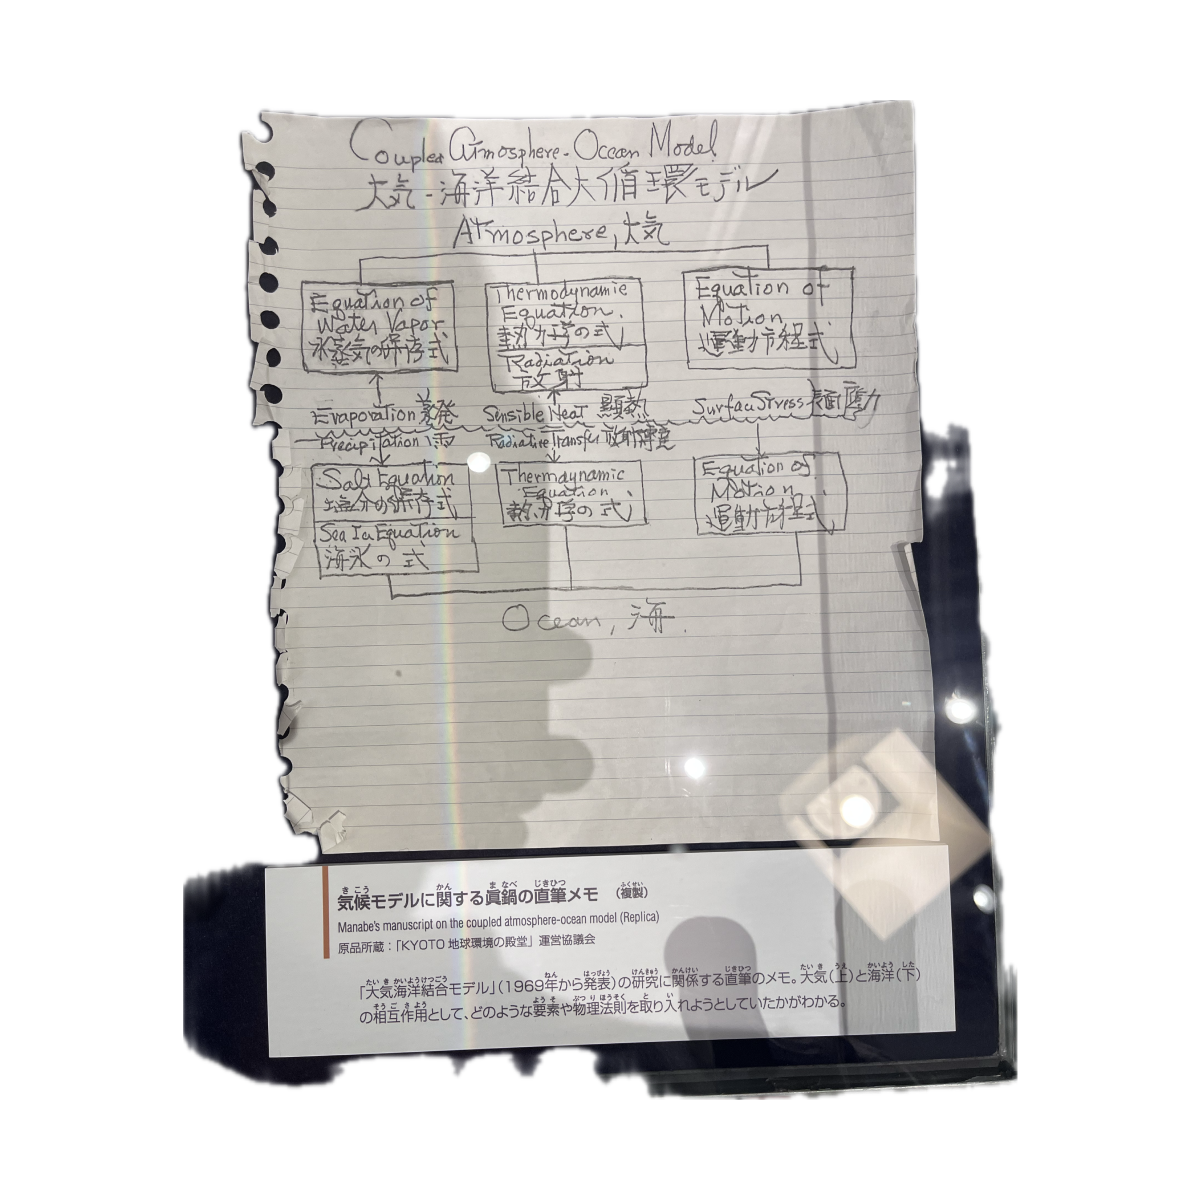 Coupled Atmosphere-Ocean Model
大気-海洋結合大循環モデル
Atmosphere, 大気
Equation of
Water Vapor
水蒸気の保存式
Thermodynamic
Equation.
熱力学の式
Radiation
放射
Equation of
Motion
運動方程式
Evaporation 蒸発
Sensible Heat 顕熱
Surface Stress 表面応力
Precipitation 雨
Radiative Transfer 放射伝達
Salt Equation
塩分の保存式
Sea Ice Equation
海氷の式
Thermodynamic
Equation
熱力学の式
Equation of
Motion
運動方程式
Ocean, 海.
気候モデルに関する眞鍋の直筆メモ (複製)
Manabe's manuscript on the coupled atmosphere-ocean model (Replica)
原品所蔵：「KYOTO 地球環境の殿堂」運営協議会
「大気海洋結合モデル」（1969年から発表）の研究に関係する直筆のメモ。大気（上）と海洋（下）
の相互作用として、どのような要素や物理法則を取り入れようとしていたかがわかる。